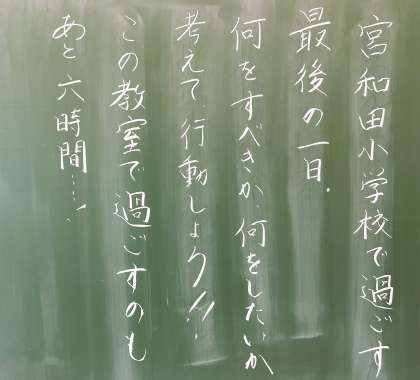 宮和田小学校で過ごす
最後の一日.
何をすべきか.何をしたいか
考えて.行動しよう!!.
この教室で過ごすのも
あと六時間…!